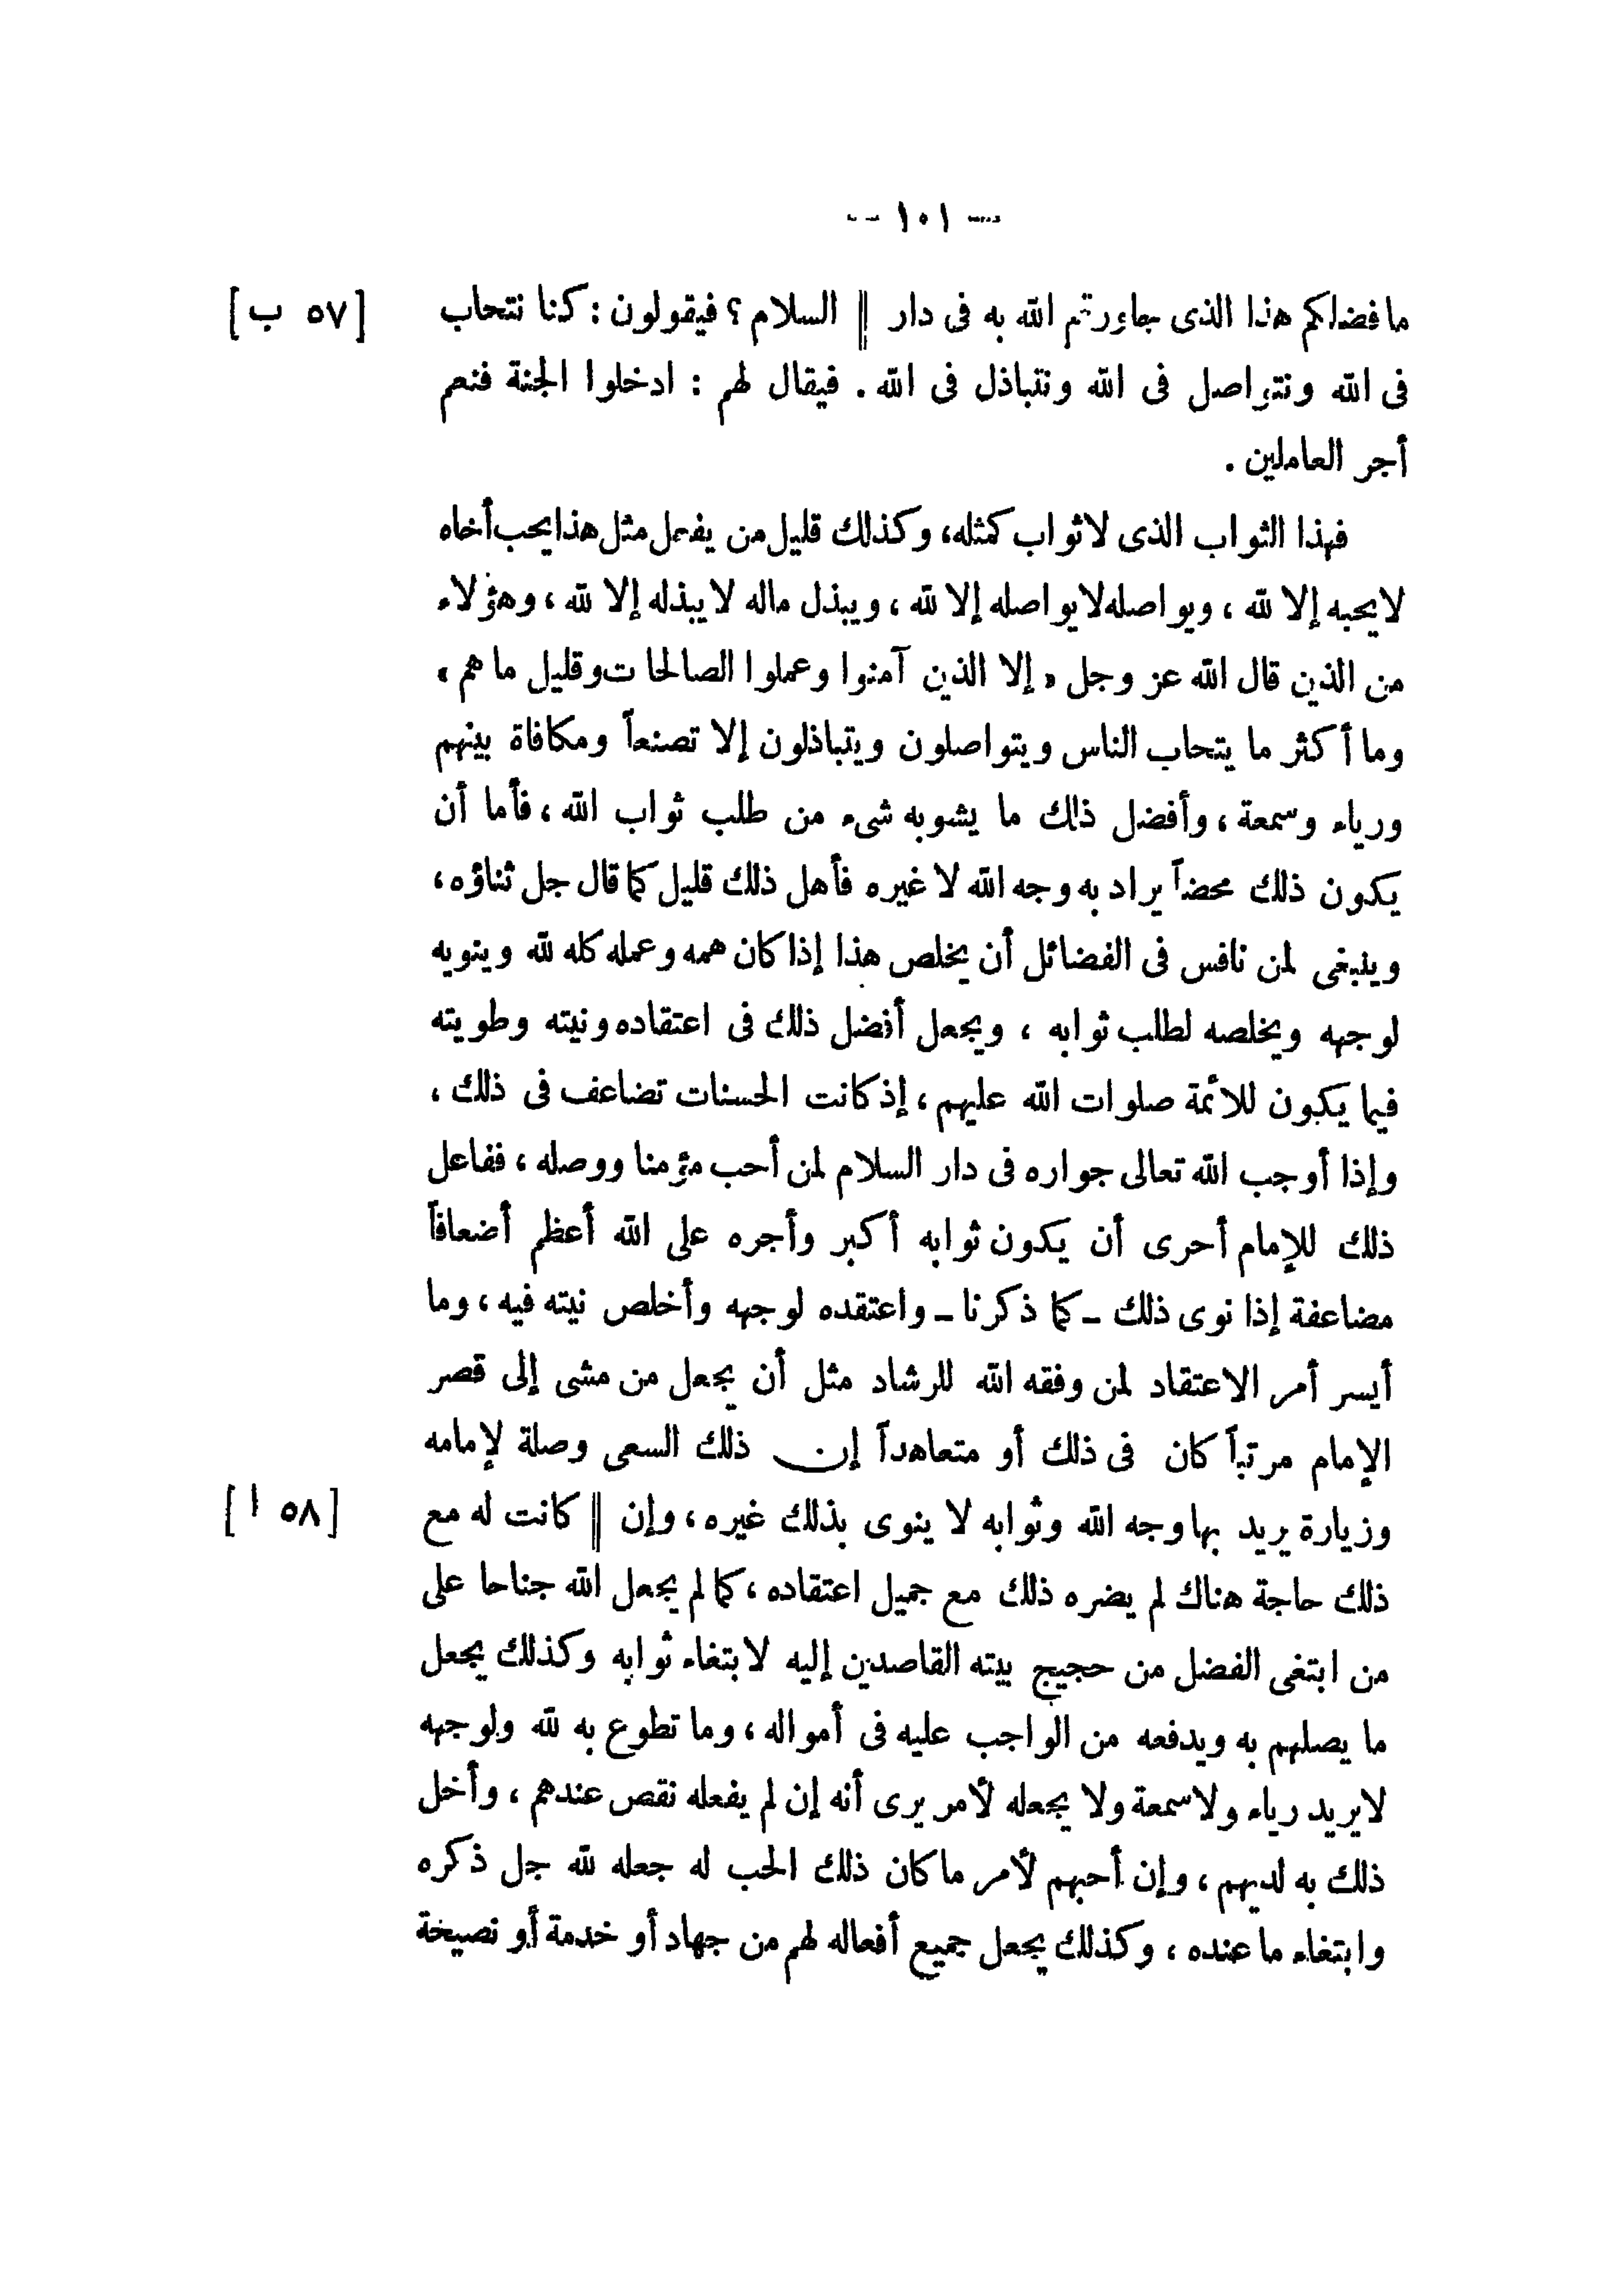 — ١٠١ —
ما فضلكم هذا الذى جاورتم الله به فى دار || السلام ؟ فيقولون : كنا نتحاب [ ٥٧ ب ]
فى الله ونتواصل فى الله ونتباذل فى الله . فيقال لهم : ادخلوا الجنة فنعم
أجر العاملين .
فهذا الثواب الذى لا ثواب كمثله، وكذلك قليل من يفعل مثل هذا يحب أخاه
لا يحبه إلا لله ، ويواصله لا يواصله إلا لله ، ويبذل ماله لا يبذله إلا لله ، وهؤلاء
من الذين قال الله عز وجل « إلا الذين آمنوا وعملوا الصالحات وقليل ما هم »
وما أكثر ما يتحاب الناس ويتواصلون ويتباذلون إلا تصنعاً ومكافاة بينهم
ورياء وسمعة ، وأفضل ذلك ما يشوبه شىء من طلب ثواب الله ، فأما أن
يكون ذلك محضاً يراد به وجه الله لا غيره فأهل ذلك قليل كما قال جل ثناؤه ،
وينبغى لمن نافس فى الفضائل أن يخلص هذا إذا كان همه وعمله كله لله وينويه
لوجهه ويخلصه لطلب ثوابه ، ويجعل أفضل ذلك فى اعتقاده ونيته وطويته
فيما يكون للائمة صلوات الله عليهم ، إذ كانت الحسنات تضاعف فى ذلك ،
وإذا أوجب الله تعالى جواره فى دار السلام لمن أحب مؤمنا ووصله ، ففاعل
ذلك للإمام أحرى أن يكون ثوابه أكبر وأجره على الله أعظم أضعافاً
مضاعفة إذا نوى ذلك – كما ذكرنا – واعتقده لوجهه وأخلص نيته فيه ، وما
أيسر أمر الاعتقاد لمن وفقه الله للرشاد مثل أن يجعل من مشى إلى قصر
الإمام مرتباً كان فى ذلك أو متعاهداً إن ذلك السعى وصلة لإمامه
وزيارة يريد بها وجه الله وثوابه لا ينوى بذلك غيره ، وإن || كانت له مع [ ٥٨ ا ]
ذلك حاجة هناك لم يضره ذلك مع جميل اعتقاده ، كما لم يجعل الله جناحا على
من ابتغى الفضل من حجيج بيته القاصدين إليه لابتغاء ثوابه وكذلك يجعل
ما يصلهم به ويدفعه من الواجب عليه فى أمواله ، وما تطوع به لله ولوجهه
لا يريد رياء ولا سمعة ولا يجعله لأمر يرى أنه إن لم يفعله نقص عندهم ، وأخل
ذلك به لديهم ، وإن أحبهم لأمر ما كان ذلك الحب له جعله لله جل ذكره
وابتغاء ما عنده ، وكذلك يجعل جميع أفعاله لهم من جهاد أو خدمة أو نصيحة